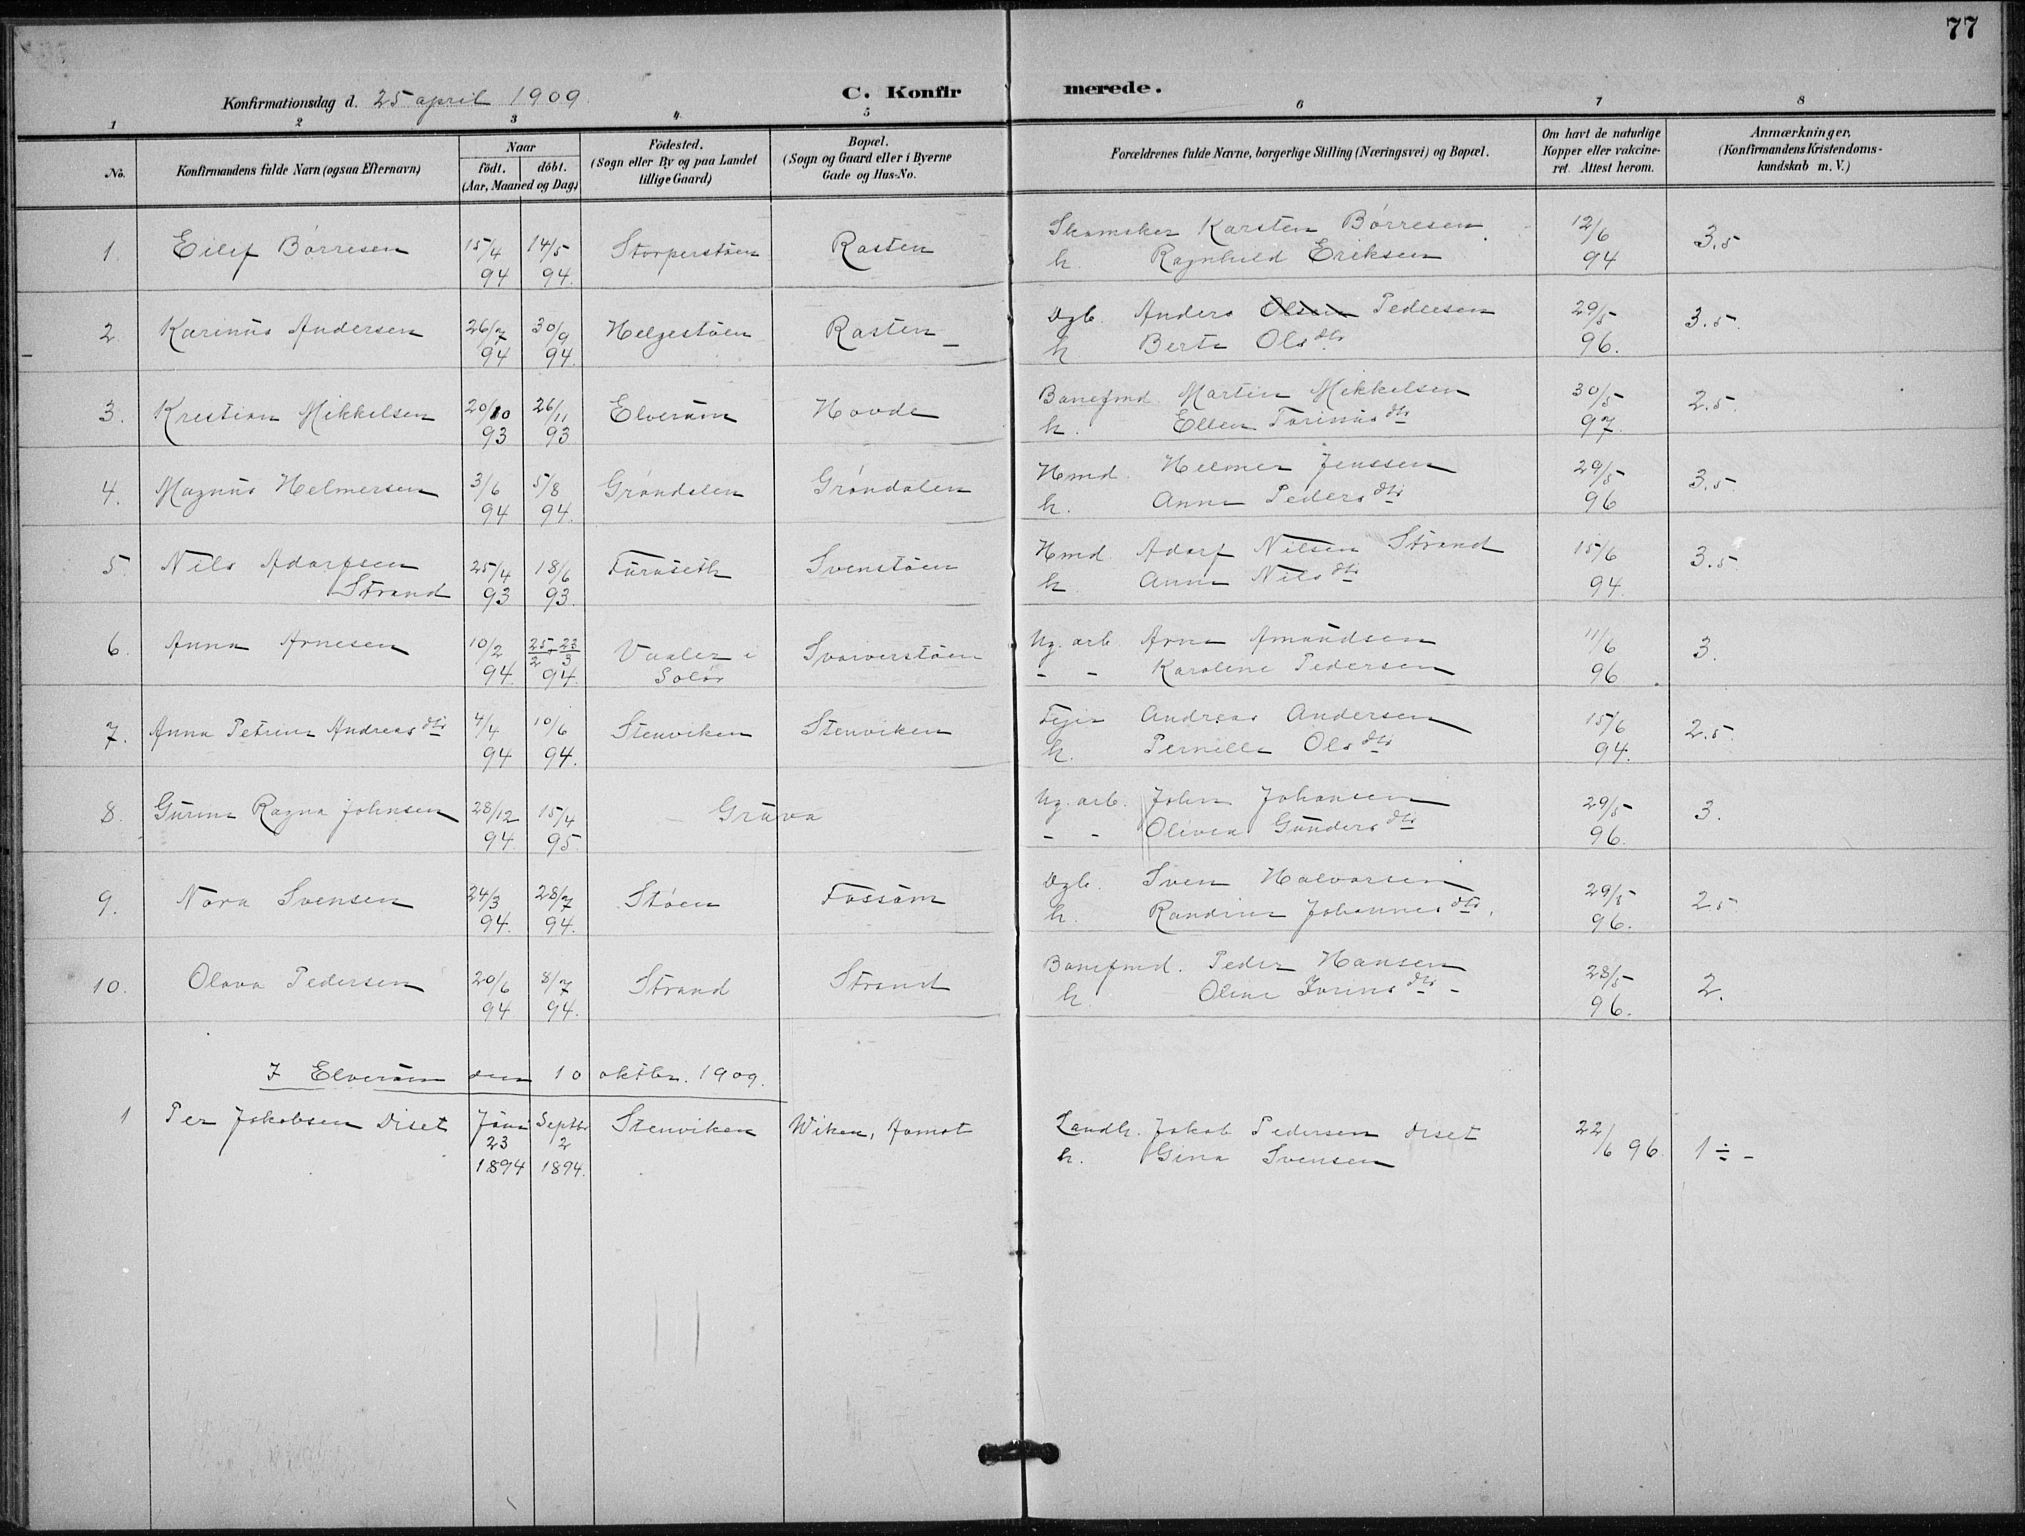 77
Konfirmationsdag d. 25 april 1909.
C. Konfirmerede.
1 2 3 4. 5 6 7 8
No.
Konfirmandens fulde Navn (ogsaa Efternavn)
Naar
födt. döbt.
(Aar, Maaned og Dag)
Födested.
(Sogn eller By og paa Landet
tillige Gaard)
Bopæl.
(Sogn og Gaard eller i Byerne
Gade og Hus-No.
Forældrenes fulde Navne, borgerlige Stilling (Næringsvei) og Bopæl.
Om havt de naturlige
Kopper eller vakcine-
ret. Attest herom.
Anmærkninger,
(Konfirmandens Kristendoms-
kundskab m. V.)
1. Eilef Börresen 15/4 94 14/5 94. Storperstöen Rasten Skomaker Karsten Börresen 12/6 94 3.5
h. Ragnhild Eriksen
2 Karinus Andersen 26/7 94 30/9 94. Helgestöen Rasten Dgb. Anders Olsen Pedersen 29/5 96. 3.5.
h Berte Olsdtr
3. Kristian Mikkelsen 20/10 93 26/11 93 Elverum Hovde Banefmd. Martin Mikkelsen 30/5 97. 2.5.
h. Ellen Torinusdtr
4. Magnus Helmersen 3/6 94 5/8 94. Gröndalen Gröndalen Hmd. Helmer Jenssen 29/5 96 3.5.
h. Anne Pedersdtr
5. Nils Adorfsen Strand 25/4 93 18/6 93. Furuseth Svenstöen Hmd Adorf Nilsen Strand 15/6 94. 3.5
h. Anne Nilsdtr
6. Anna Arnesen 10/2 94. 25/2 - 23/3 94. Vaaler i Solör Svarverstöen Ug. arb. Arne Amundsen 11/6 96 3.
- - Karoline Pedersen
7. Anna Petrine Andreasdtr 4/4 94 10/6 94. Stenviken Stenviken Fejer Andreas Andersen 15/6 94. 2.5.
h. Pernille Olsdtr
8. Gurine Ragna Johnsen 28/12 94. 15/4 95. Gruva Ug. arb. John Johansen 29/5 96. 3.
- - Olivea Gundersdtr
9. Nora Svensen 24/3 94. 28/7 94. Stöen Fossum Dgb. Sven Halvorsen 29/5 96. 2.5
h. Randine Johannesdtr.
10. Olava Pedersen 20/6 94 8/7 94. Strand Strand Banefmd. Peder Hansen 28/5 96. 2.
h. Oline Jonsdtr -
I Elverum den 10 oktbr. 1909.
1 Per Jakobsen Diset Juni 23 1894 Septbr 2 1894. Stenviken Wiken, Aamot Landh. Jakob Pedersen Diset 22/6 96. 1 ÷ -
h. Gina Svensen